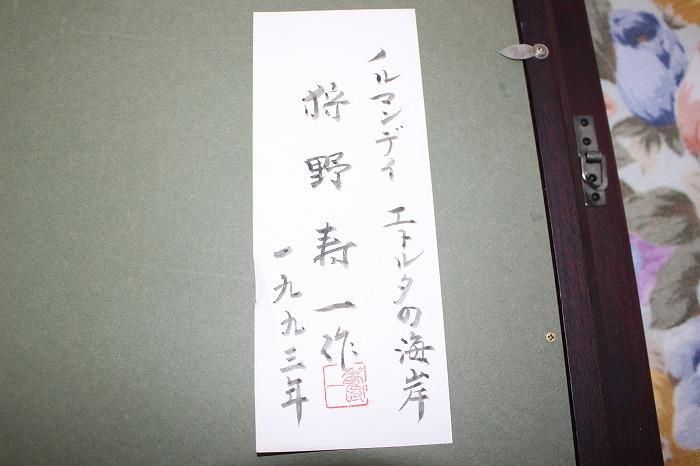 ノルマンディ エトルタの海岸
狩野寿一作
一九九三年